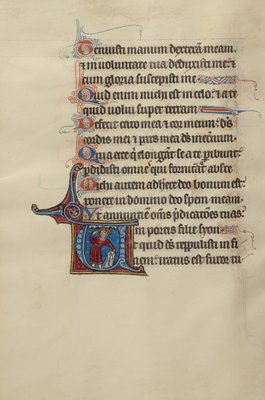 Tenuisti manum dexteram meam.
et in voluntate tua deduxisti me: et
cum gloria suscepisti me
Quid enim michi est in celo: et a te
quid volui super terram
Defecit caro mea et cor meum: ds
cordis mei et pars mea ds in eternum.
Quia ecce qi elongant se a te peribunt
pdidisti omnes qui fornicant abs te
Michi autem adherere deo bonum est
ponere in domino deo spem meam.
Ut annuntiem omes pdicationes tuas
in portis filie syon
Ut quid ds reppulisti in fi
nem: iratus est furor tu